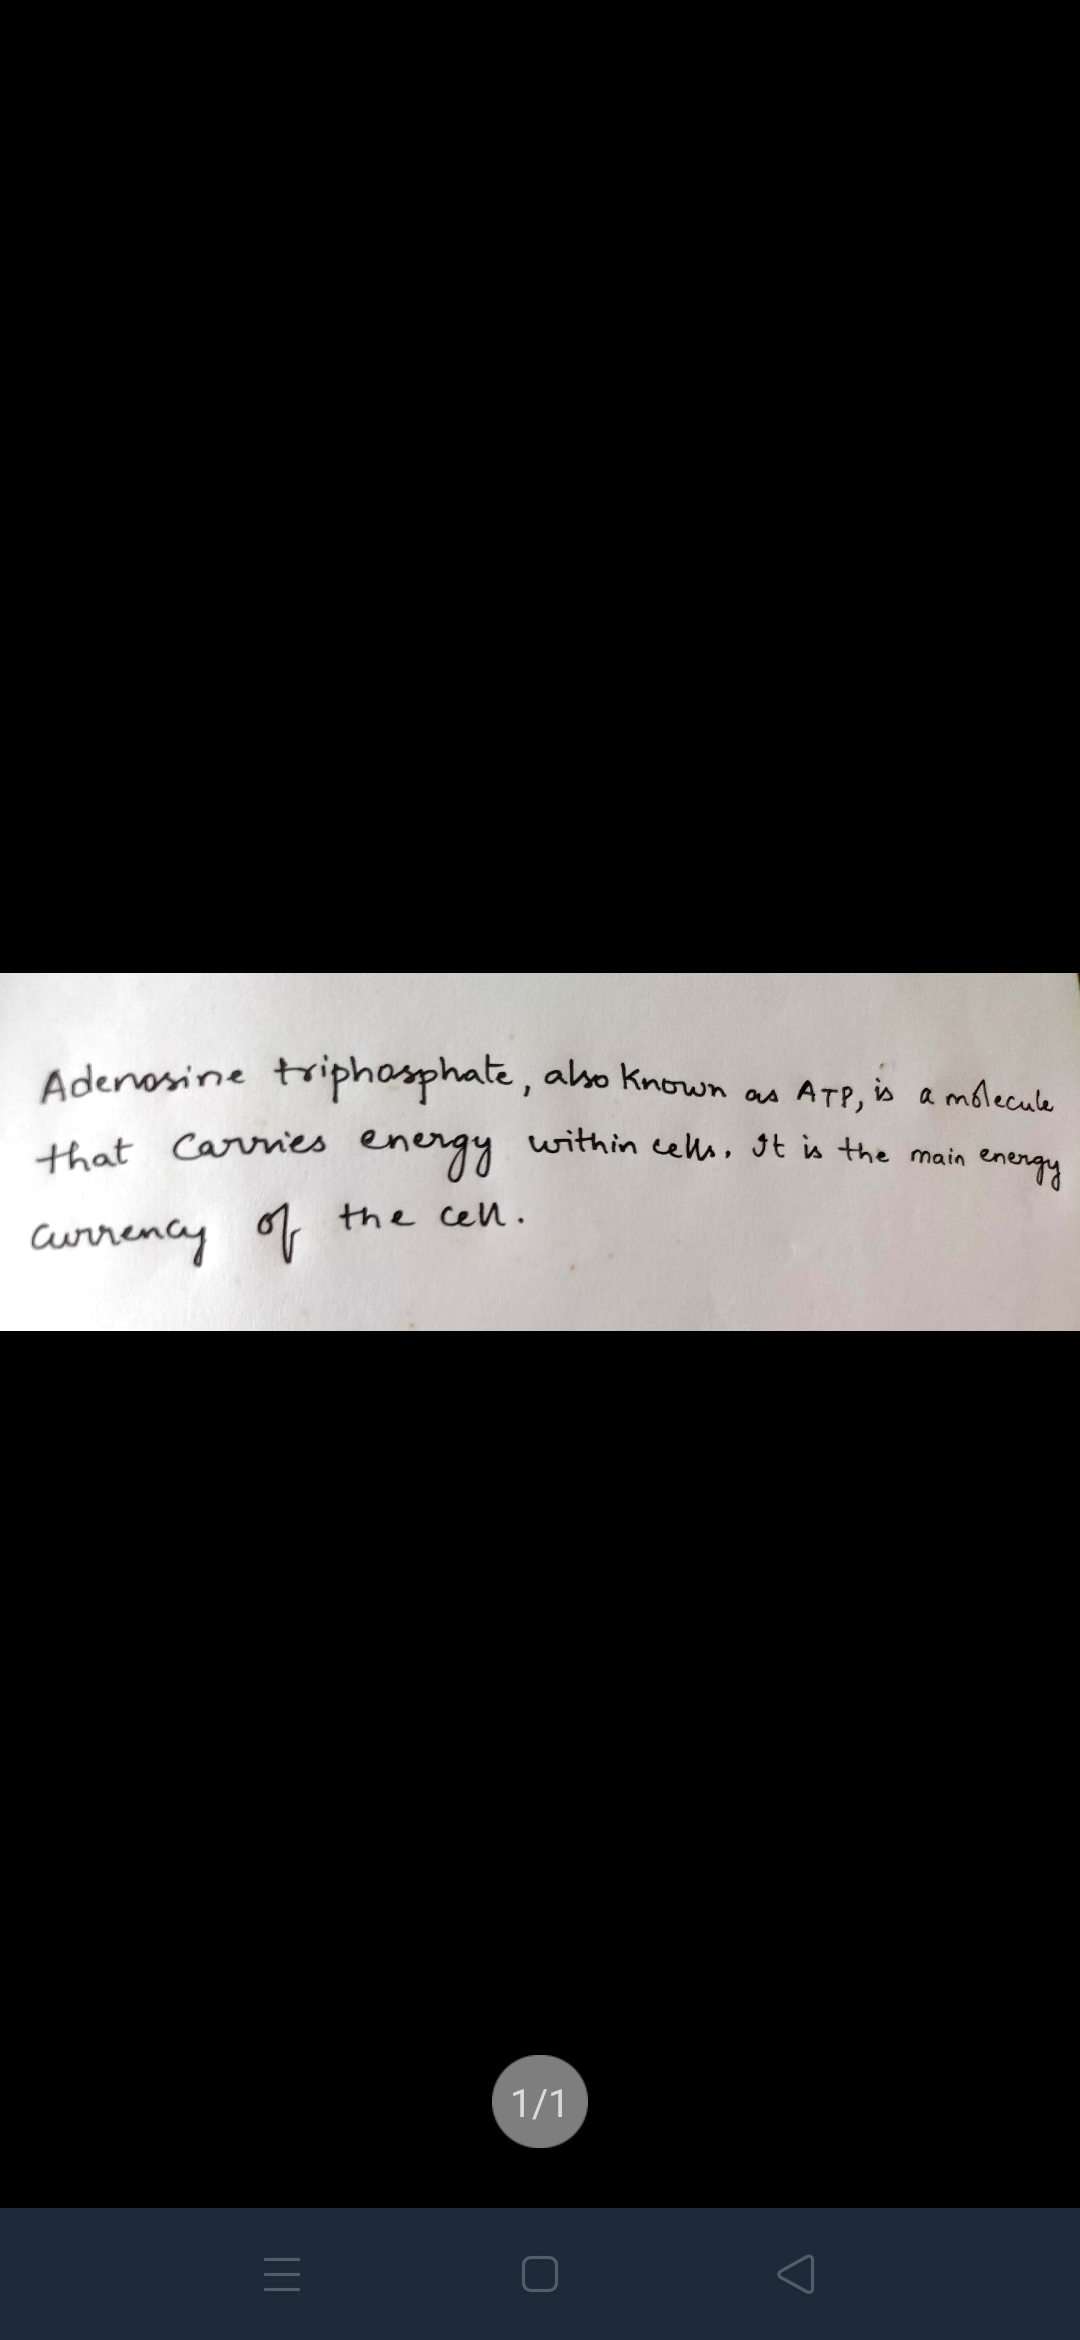 Adenosine triphosphate, also known as ATP, is a molecule
that carries energy within cells. It is the main energy
currency of the cell.
1/1